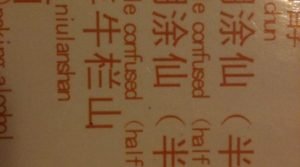 chun
涂仙（半
e confused (half
涂仙（半
e confused (half
牛栏山
niulanshan
alcohol